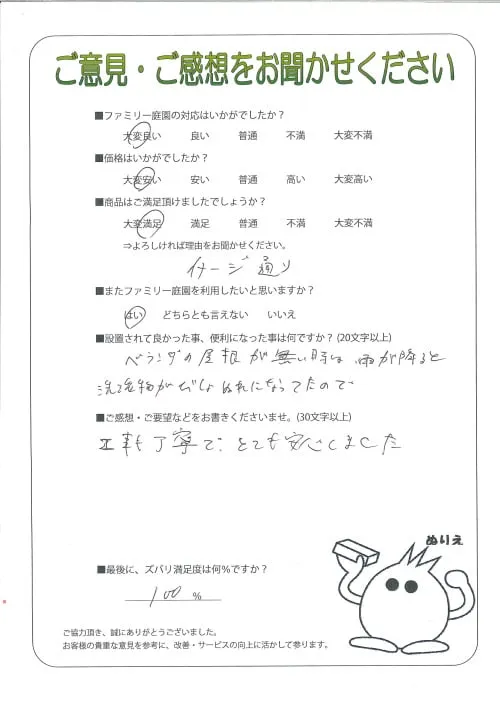 ご意見・ご感想をお聞かせください
■ファミリー庭園の対応はいかがでしたか？
大変良い 良い 普通 不満 大変不満
■価格はいかがでしたか？
大変安い 安い 普通 高い 大変高い
■商品はご満足頂けましたでしょうか？
大変満足 満足 普通 不満 大変不満
⇒よろしければ理由をお聞かせください。
イメージ通り
■またファミリー庭園を利用したいと思いますか？
はい どちらとも言えない いいえ
■設置されて良かった事、便利になった事は何ですか？(20文字以上)
ベランダの屋根が無い時は、雨が降ると
洗濯物がびしょぬれになってたので
■ご感想・ご要望などをお書きくださいませ。(30文字以上)
工事も丁寧で、とても安心しました
ぬりえ
■最後に、ズバリ満足度は何%ですか？
100 %
ご協力頂き、誠にありがとうございました。
お客様の貴重な意見を参考に、改善・サービスの向上に活かして参ります。